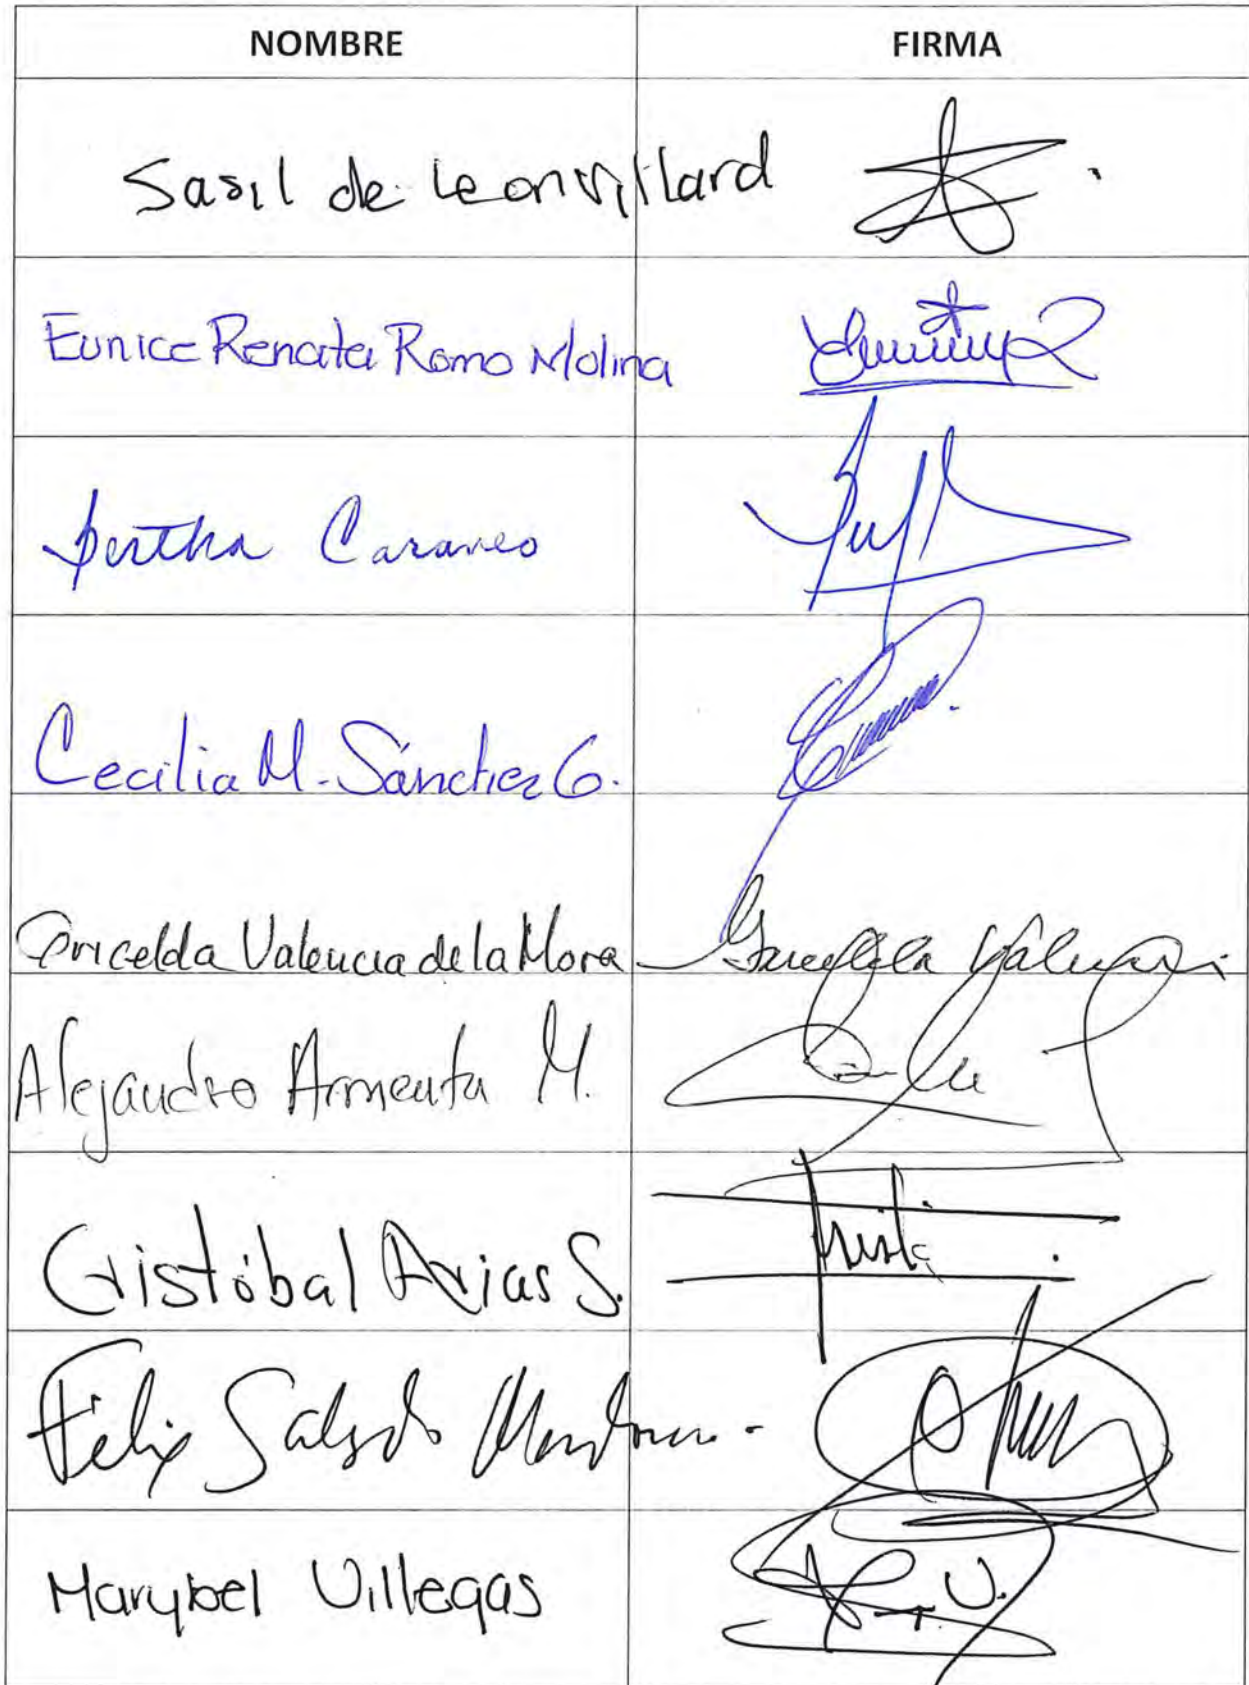 NOMBRE FIRMA
Sasil de Leon Villard
Eunice Renata Romo Molina
Bertha Caraveo
Cecilia M. Sánchez G.
Gricelda Valencia de la Mora Gricelda Valencia
Alejandro Armenta M.
Cristóbal Arias S.
Félix Salgado Macedonio
Marybel Villegas